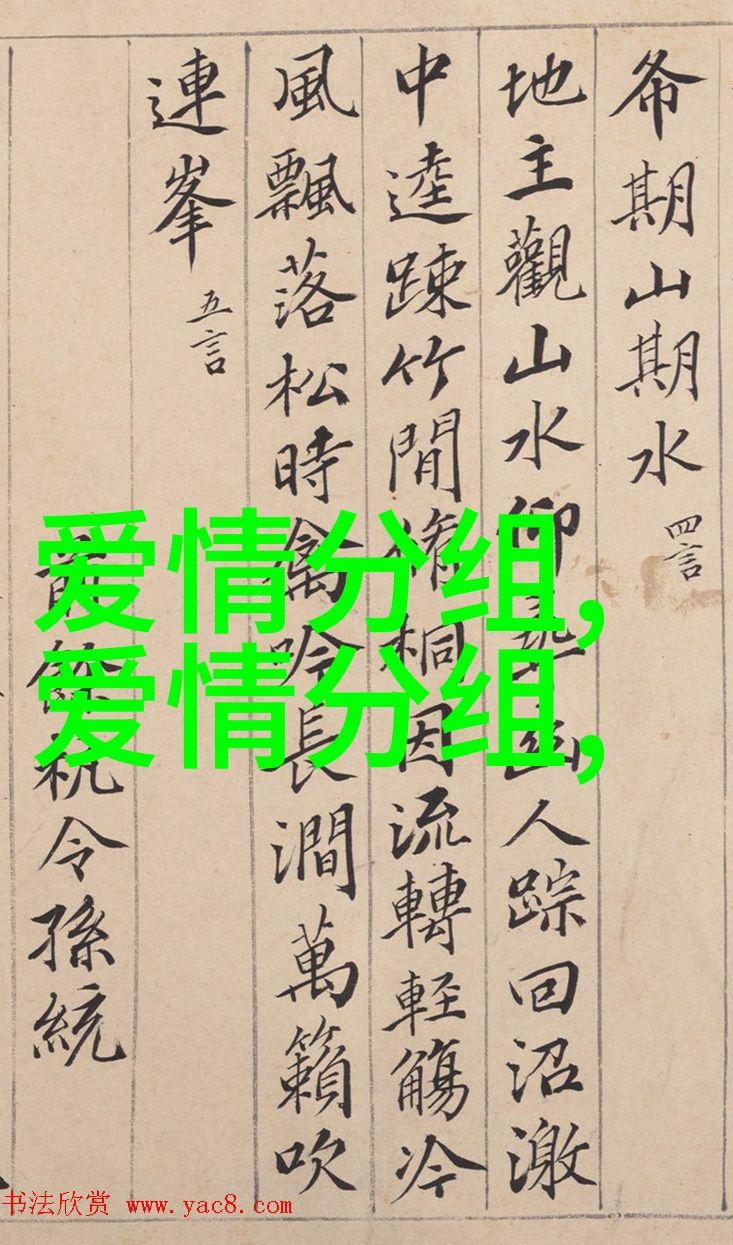 希期山期水 四言
地主觀山水仰尋幽人踪回沼激
中逵踈竹間脩桐因流轉輕觴冷
風飄落松時禽吟長澗萬籟吹
連峯 五言
前餘杭令孫統
爱情分组,
爱情分组,
书法欣赏 www.yac8.com